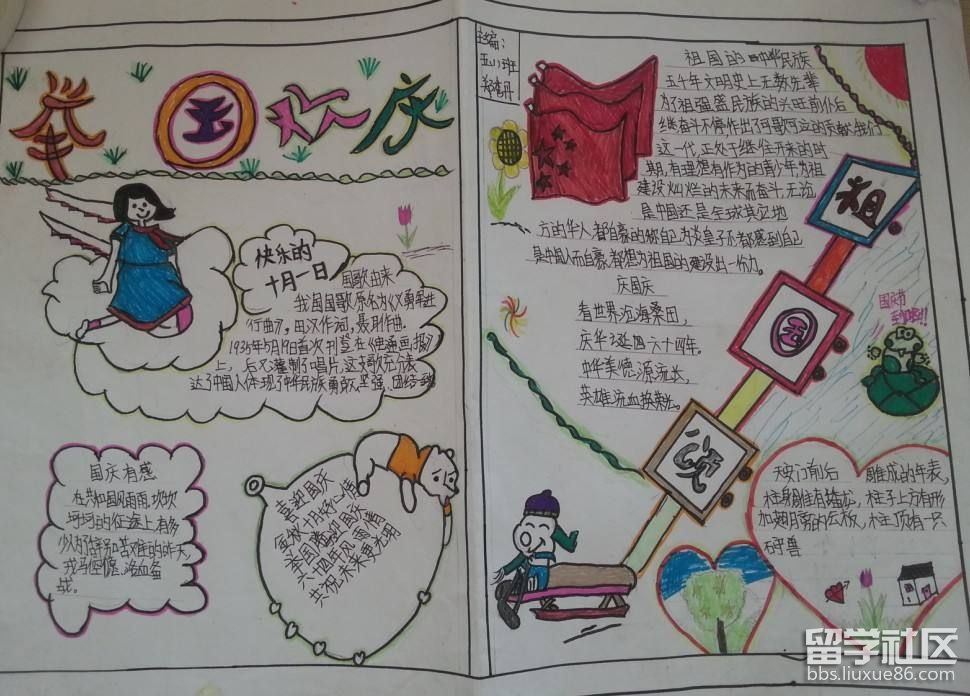 举国欢庆
快乐的
十月一日
国歌由来
我国国歌原名为《义勇军进
行曲》,田汉作词,聂耳作曲。
1935年5月19日首次刊登在《电通画报》
上,后灌制了唱片,这支歌充分表
达了中国人体现了中华民族勇敢、坚强、团结
国庆有感
在共和国风雨
坷坷的征途上,有多
少
喜迎国庆
金秋十月好心情
举国腾迎国庆
六十四年风
共祝未来更光明
主编:
五(1)班
祖国的中华民族
五千年文明史上无数先辈
为了祖强盛民族的兴旺前仆后
继奋斗不停作出了可歌可泣的贡献我们
这一代,正处于继往开来的时
期,有理想有作为的青少年为祖
建设灿烂的未来而奋斗,无论
是中国还是全球其它地
方的华人都自豪的称自己为炎皇子都感到自己
是中国人而自豪,都想为祖国的建设出一份力。
庆国庆
看世界沉海桑田,
庆华诞四六十四年。
中华美德源流长,
英雄流血换
祖
国
颂
国庆节
到啦!!
天安门前后
雕成的年表,
柱子上方有形
柱顶有一只
石守兽
留学社区
bbs.liuxue86.com